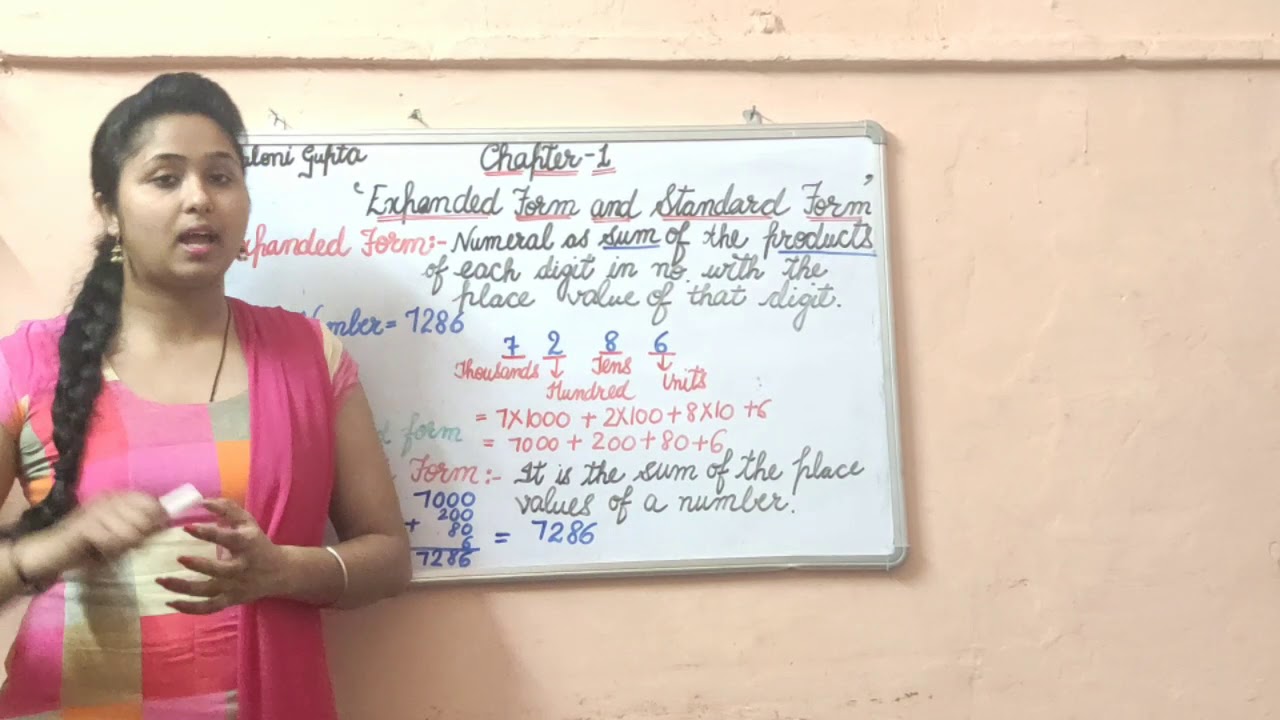 aloni Gupta
Chapter-1
'Expanded Form and Standard Form'
xpanded Form:- Numeral as sum of the products
of each digit in no. with the
place value of that digit.
Number = 7286
7 2 8 6
Thousands ↓ Tens ↓
Hundred Units
= 7X1000 + 2X100 + 8X10 + 6
form = 7000 + 200 + 80 + 6
Form:- It is the sum of the place
values of a number.
7000
200
+ 80
6
7286
= 7286